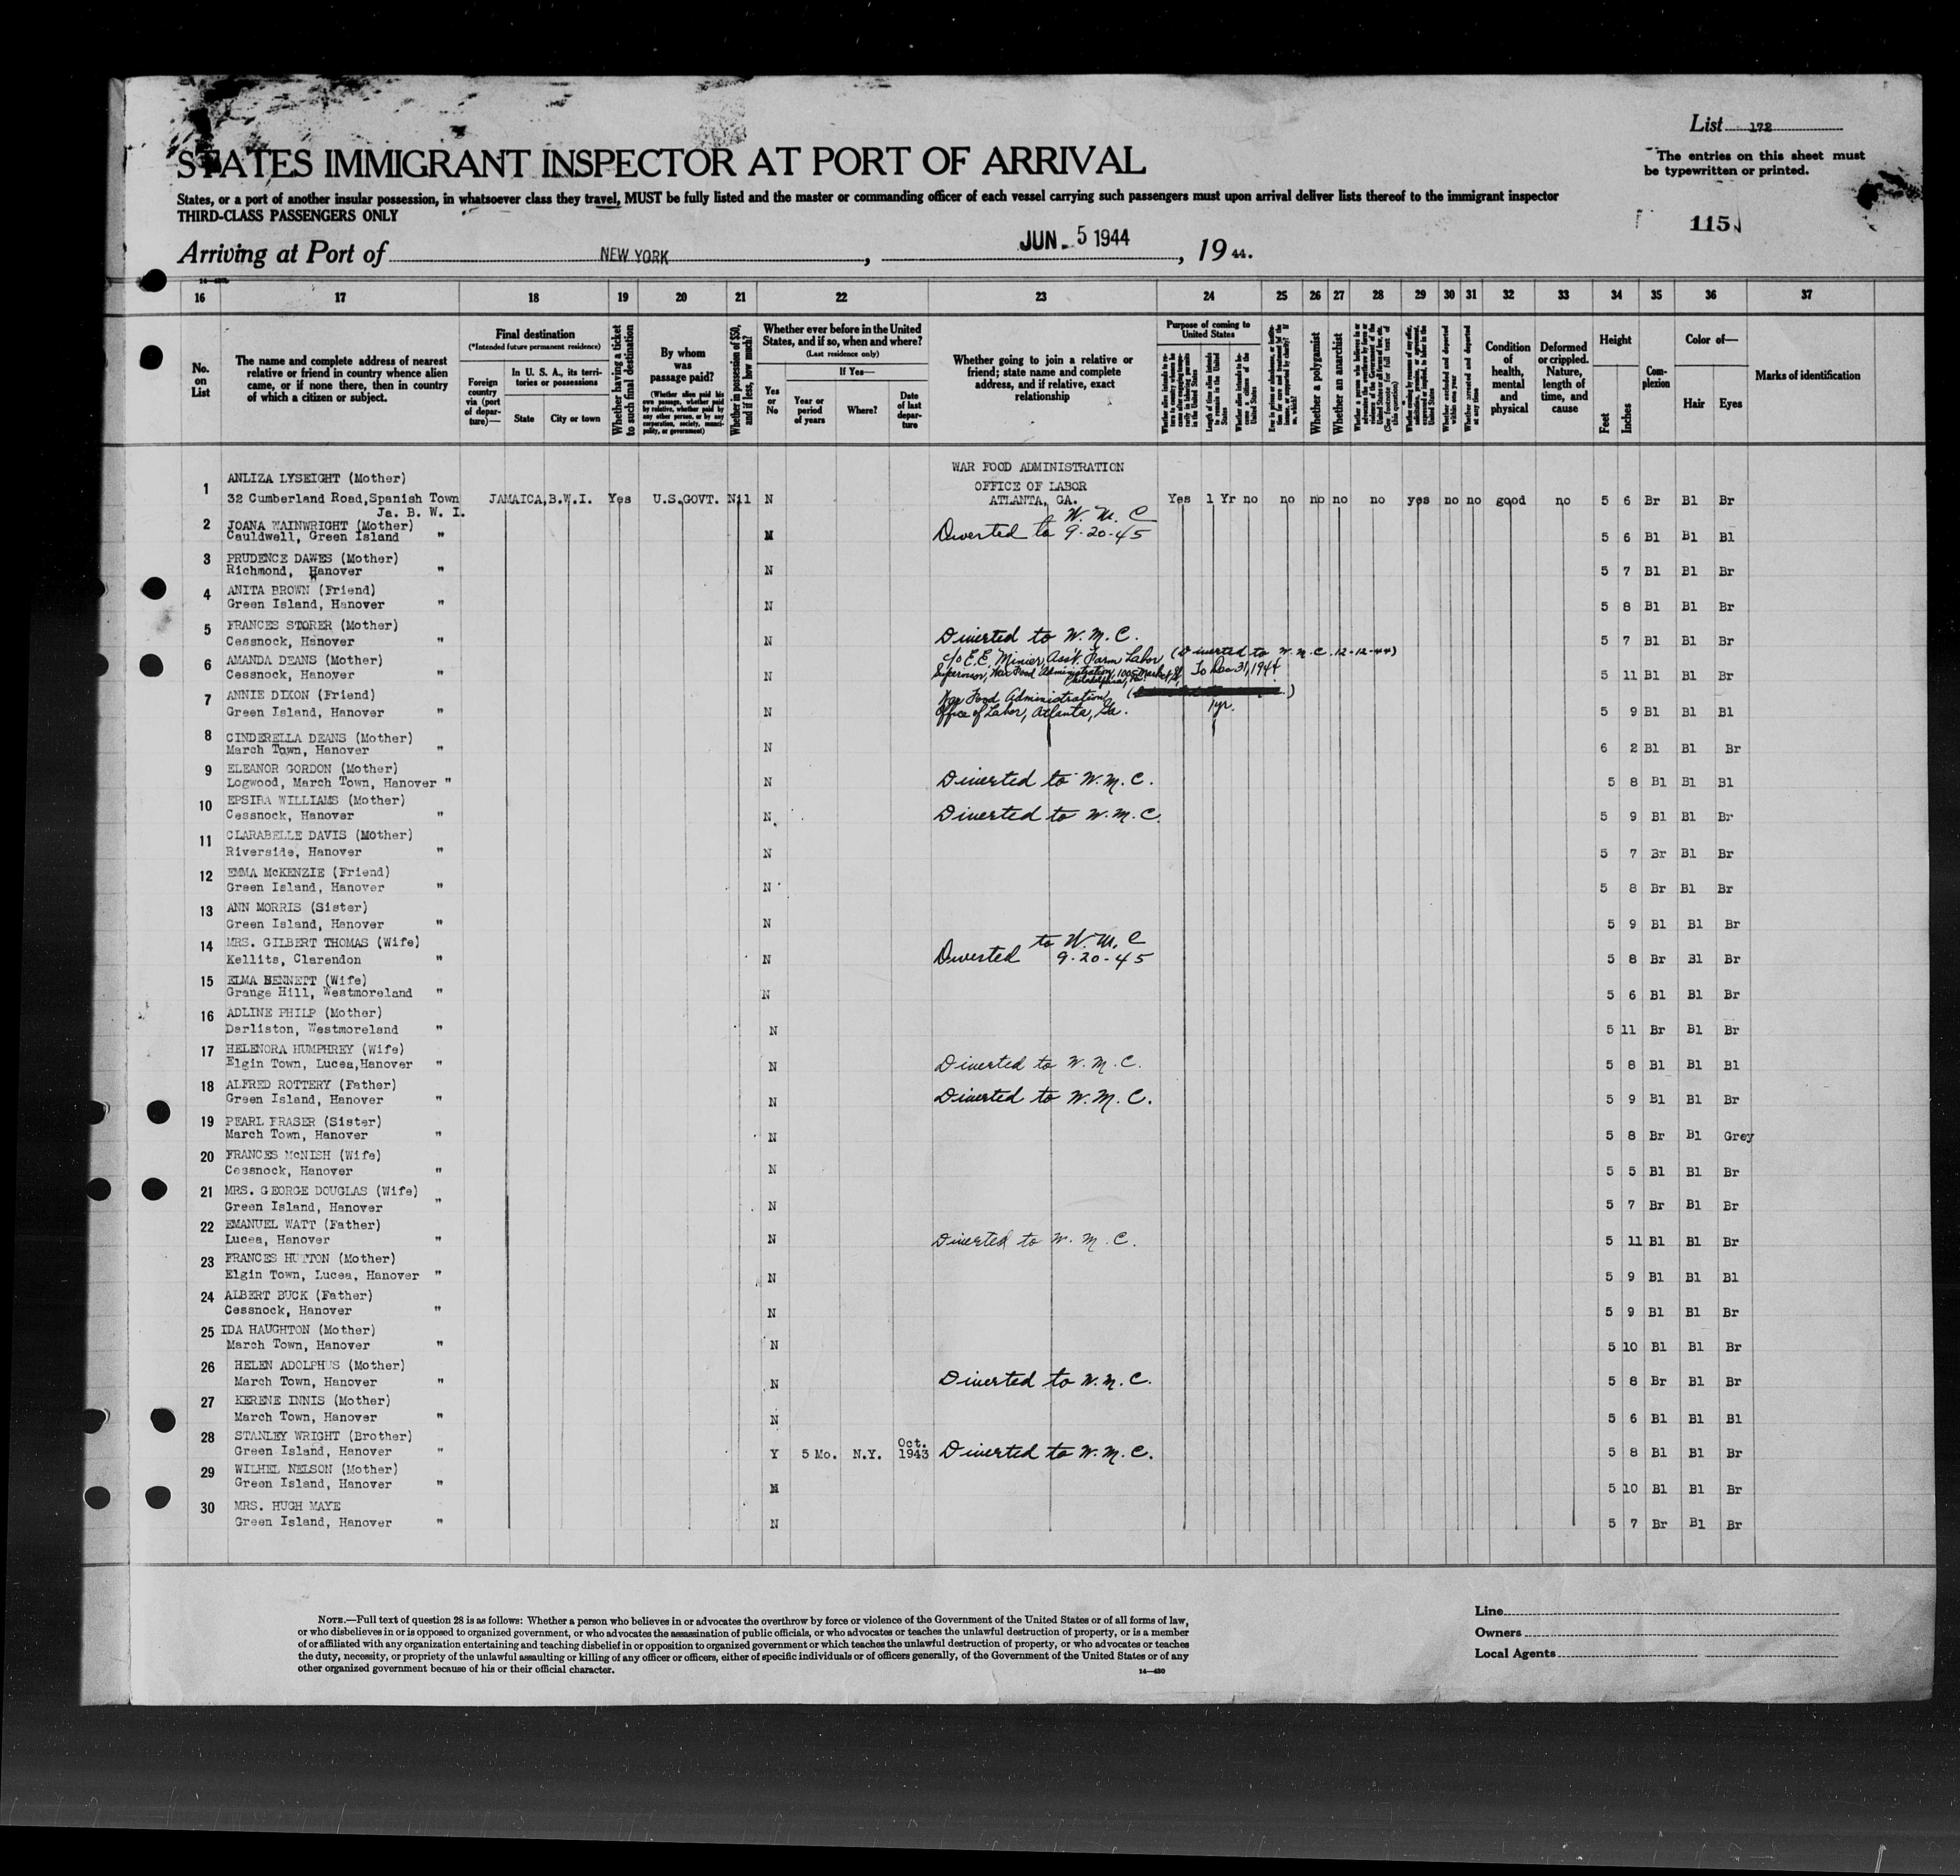 List 172
The entries on this sheet must
be typewritten or printed.
STATES IMMIGRANT INSPECTOR AT PORT OF ARRIVAL
States, or a port of another insular possession, in whatsoever class they travel, MUST be fully listed and the master or commanding officer of each vessel carrying such passengers must upon arrival deliver lists thereof to the immigrant inspector
THIRD-CLASS PASSENGERS ONLY
115
Arriving at Port of NEW YORK, JUN 5 1944, 19 44.
16 17 18 19 20 21 22 23 24 25 26 27 28 29 30 31 32 33 34 35 36 37
No. on List
The name and complete address of nearest relative or friend in country whence alien came, or if none there, then in country of which a citizen or subject.
Final destination
(*Intended future permanent residence)
Foreign country via (port of departure)—
In U. S. A., its territories or possessions
State
City or town
Whether having a ticket to such final destination
By whom was passage paid?
(Whether alien paid his own passage, whether paid by relative, whether paid by any other person, or by any corporation, society, municipality, or government)
Whether in possession of $50, and if less, how much?
Whether ever before in the United States, and if so, when and where?
(Last residence only)
Yes or No
If Yes—
Year or period of years
Where?
Date of last departure
Whether going to join a relative or friend; state name and complete address, and if relative, exact relationship
Purpose of coming to United States
Length of time alien intends to remain in the United States
Whether a polygamist
Whether an anarchist
Whether excluded and deported within one year
Whether arrested and deported at any time
Condition of health, mental and physical
Deformed or crippled. Nature, length of time, and cause
Height
Feet
Inches
Complexion
Color of—
Hair
Eyes
Marks of identification
1 ANLIZA LYSEIGHT (Mother)
32 Cumberland Road, Spanish Town
Ja. B. W. I.
JAMAICA, B.W.I. Yes U.S.GOVT. Nil N
WAR FOOD ADMINISTRATION
OFFICE OF LABOR
ATLANTA, GA.
Yes 1 Yr no no no no no yes no no good no 5 6 Br Bl Br
2 JOANA WAINWRIGHT (Mother)
Cauldwell, Green Island " N Diverted to W. M. C 9-20-45 5 6 Bl Bl Bl
3 PRUDENCE DAWES (Mother)
Richmond, Hanover " N 5 7 Bl Bl Br
4 ANITA BROWN (Friend)
Green Island, Hanover " N 5 8 Bl Bl Br
5 FRANCES STORER (Mother)
Cessnock, Hanover " N Diverted to W. M. C. 5 7 Bl Bl Br
6 AMANDA DEANS (Mother)
Cessnock, Hanover " N c/o E.E. Minier, Ass't. Farm Labor (Diverted to W.M.C. 12-12-44)
Supervisor, War Food Administration, 1005 Market St. Philadelphia, Pa. To Dec. 31, 1944 5 11 Bl Bl Br
7 ANNIE DIXON (Friend)
Green Island, Hanover " N War Food Administration
Office of Labor, Atlanta, Ga. 1yr. 5 9 Bl Bl Bl
8 CINDERELLA DEANS (Mother)
March Town, Hanover " N 6 2 Bl Bl Br
9 ELEANOR GORDON (Mother)
Logwood, March Town, Hanover " N Diverted to W.M.C. 5 8 Bl Bl Bl
10 EPSIRA WILLIAMS (Mother)
Cessnock, Hanover " N Diverted to W.M.C. 5 9 Bl Bl Br
11 CLARABELLE DAVIS (Mother)
Riverside, Hanover " N 5 7 Br Bl Br
12 EMMA McKENZIE (Friend)
Green Island, Hanover " N 5 8 Br Bl Br
13 ANN MORRIS (Sister)
Green Island, Hanover " N 5 9 Bl Bl Br
14 MRS. GILBERT THOMAS (Wife)
Kellits, Clarendon " N Diverted to W. M. C 9-20-45 5 8 Br Bl Br
15 ELMA BENNETT (Wife)
Grange Hill, Westmoreland " N 5 6 Bl Bl Br
16 ADLINE PHILP (Mother)
Darliston, Westmoreland " N 5 11 Br Bl Br
17 HELENORA HUMPHREY (Wife)
Elgin Town, Lucea,Hanover " N Diverted to W. M. C. 5 8 Bl Bl Bl
18 ALFRED ROTTERY (Father)
Green Island, Hanover " N Diverted to W. M. C. 5 9 Bl Bl Br
19 PEARL FRASER (Sister)
March Town, Hanover " N 5 8 Br Bl Grey
20 FRANCES McNISH (Wife)
Cessnock, Hanover " N 5 5 Bl Bl Br
21 MRS. GEORGE DOUGLAS (Wife)
Green Island, Hanover " N 5 7 Br Bl Br
22 EMANUEL WATT (Father)
Lucea, Hanover " N Diverted to W. M. C. 5 11 Bl Bl Br
23 FRANCES HUTTON (Mother)
Elgin Town, Lucea, Hanover " N 5 9 Bl Bl Bl
24 ALBERT BUCK (Father)
Cessnock, Hanover " N 5 9 Bl Bl Br
25 IDA HAUGHTON (Mother)
March Town, Hanover " N 5 10 Bl Bl Br
26 HELEN ADOLPHUS (Mother)
March Town, Hanover " N Diverted to W.M.C. 5 8 Br Bl Br
27 KERENE INNIS (Mother)
March Town, Hanover " N 5 6 Bl Bl Bl
28 STANLEY WRIGHT (Brother)
Green Island, Hanover " Y 5 Mo. N.Y. Oct. 1943 Diverted to W.M.C. 5 8 Bl Bl Br
29 WILHEL NELSON (Mother)
Green Island, Hanover " N 5 10 Bl Bl Br
30 MRS. HUGH MAYE
Green Island, Hanover " N 5 7 Br Bl Br
NOTE.—Full text of question 28 is as follows: Whether a person who believes in or advocates the overthrow by force or violence of the Government of the United States or of all forms of law,
or who disbelieves in or is opposed to organized government, or who advocates the assassination of public officials, or who advocates or teaches the unlawful destruction of property, or is a member
of or affiliated with any organization entertaining and teaching disbelief in or opposition to organized government or which teaches the unlawful destruction of property, or who advocates or teaches
the duty, necessity, or propriety of the unlawful assaulting or killing of any officer or officers, either of specific individuals or of officers generally, of the Government of the United States or of any
other organized government because of his or their official character.
14—430
Line
Owners
Local Agents